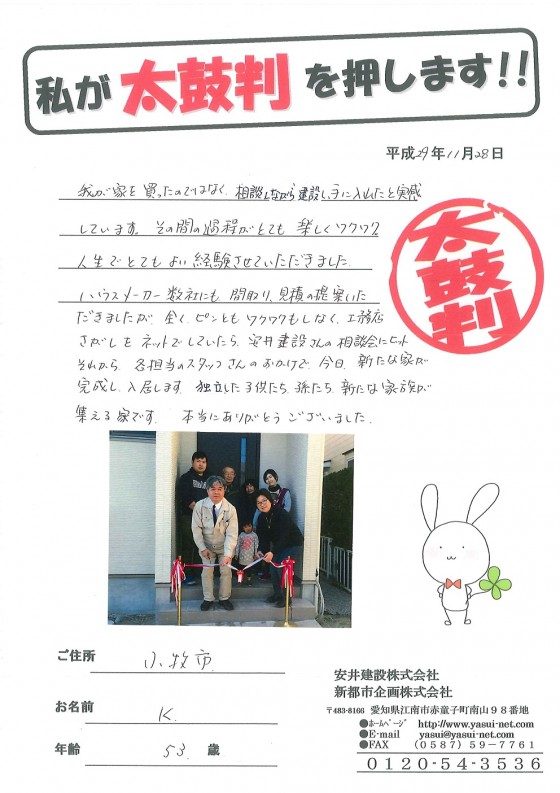 私が 太鼓判 を押します!!
平成29年11月28日
我が家を買ったのではなく、相談しながら建設し、手に入れたと実感
しています。その間の過程がとても楽しくワクワク
人生でとてもよい経験させていただきました。
ハウスメーカー数社にも間取り、見積の提案いた
だきましたが、全く、ピンともワクワクもしなく、工務店
さがしをネットでしていたら、安井建設さんの相談会にヒット
それから、各担当のスタッフさんのおかげで、今日、新たな家が
完成し、入居します。独立した子供たち、孫たち、新たな家族が
集える家です。本当にありがとうございました。
太鼓判
ご住所 小牧市
お名前 K.
年齢 53. 歳
安井建設株式会社
新都市企画株式会社
〒483-8166 愛知県江南市赤童子町南山98番地
●ホームページ http://www.yasui-net.com
●E-mail yasui@yasui-net.com
●FAX (0587)59-7761
0120-54-3536